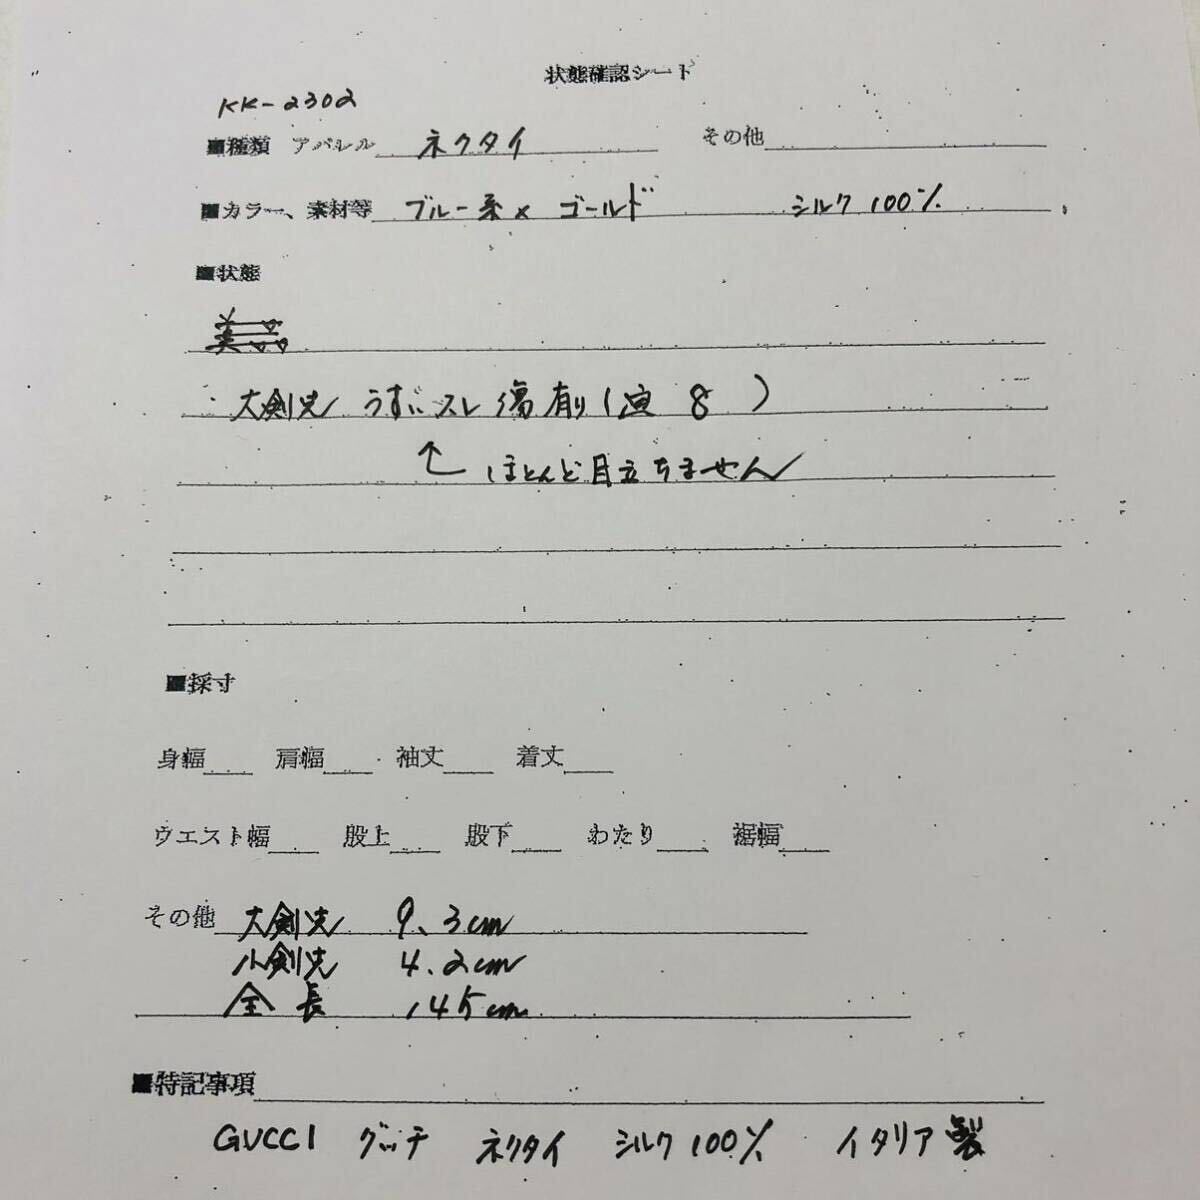 状態確認シート
KK-2302
■種類 アパレル ネクタイ その他
■カラー、素材等 ブルー系 × ゴールド シルク 100%
■状態
美品
大剣先 うすいスレ傷有り( 8 )
↑ ほとんど目立ちません
■採寸
身幅 肩幅 袖丈 着丈
ウエスト幅 股上 股下 わたり 裾幅
その他 大剣先 9.3cm
小剣先 4.2cm
全長 145cm
■特記事項
GUCCI グッチ ネクタイ シルク100% イタリア製